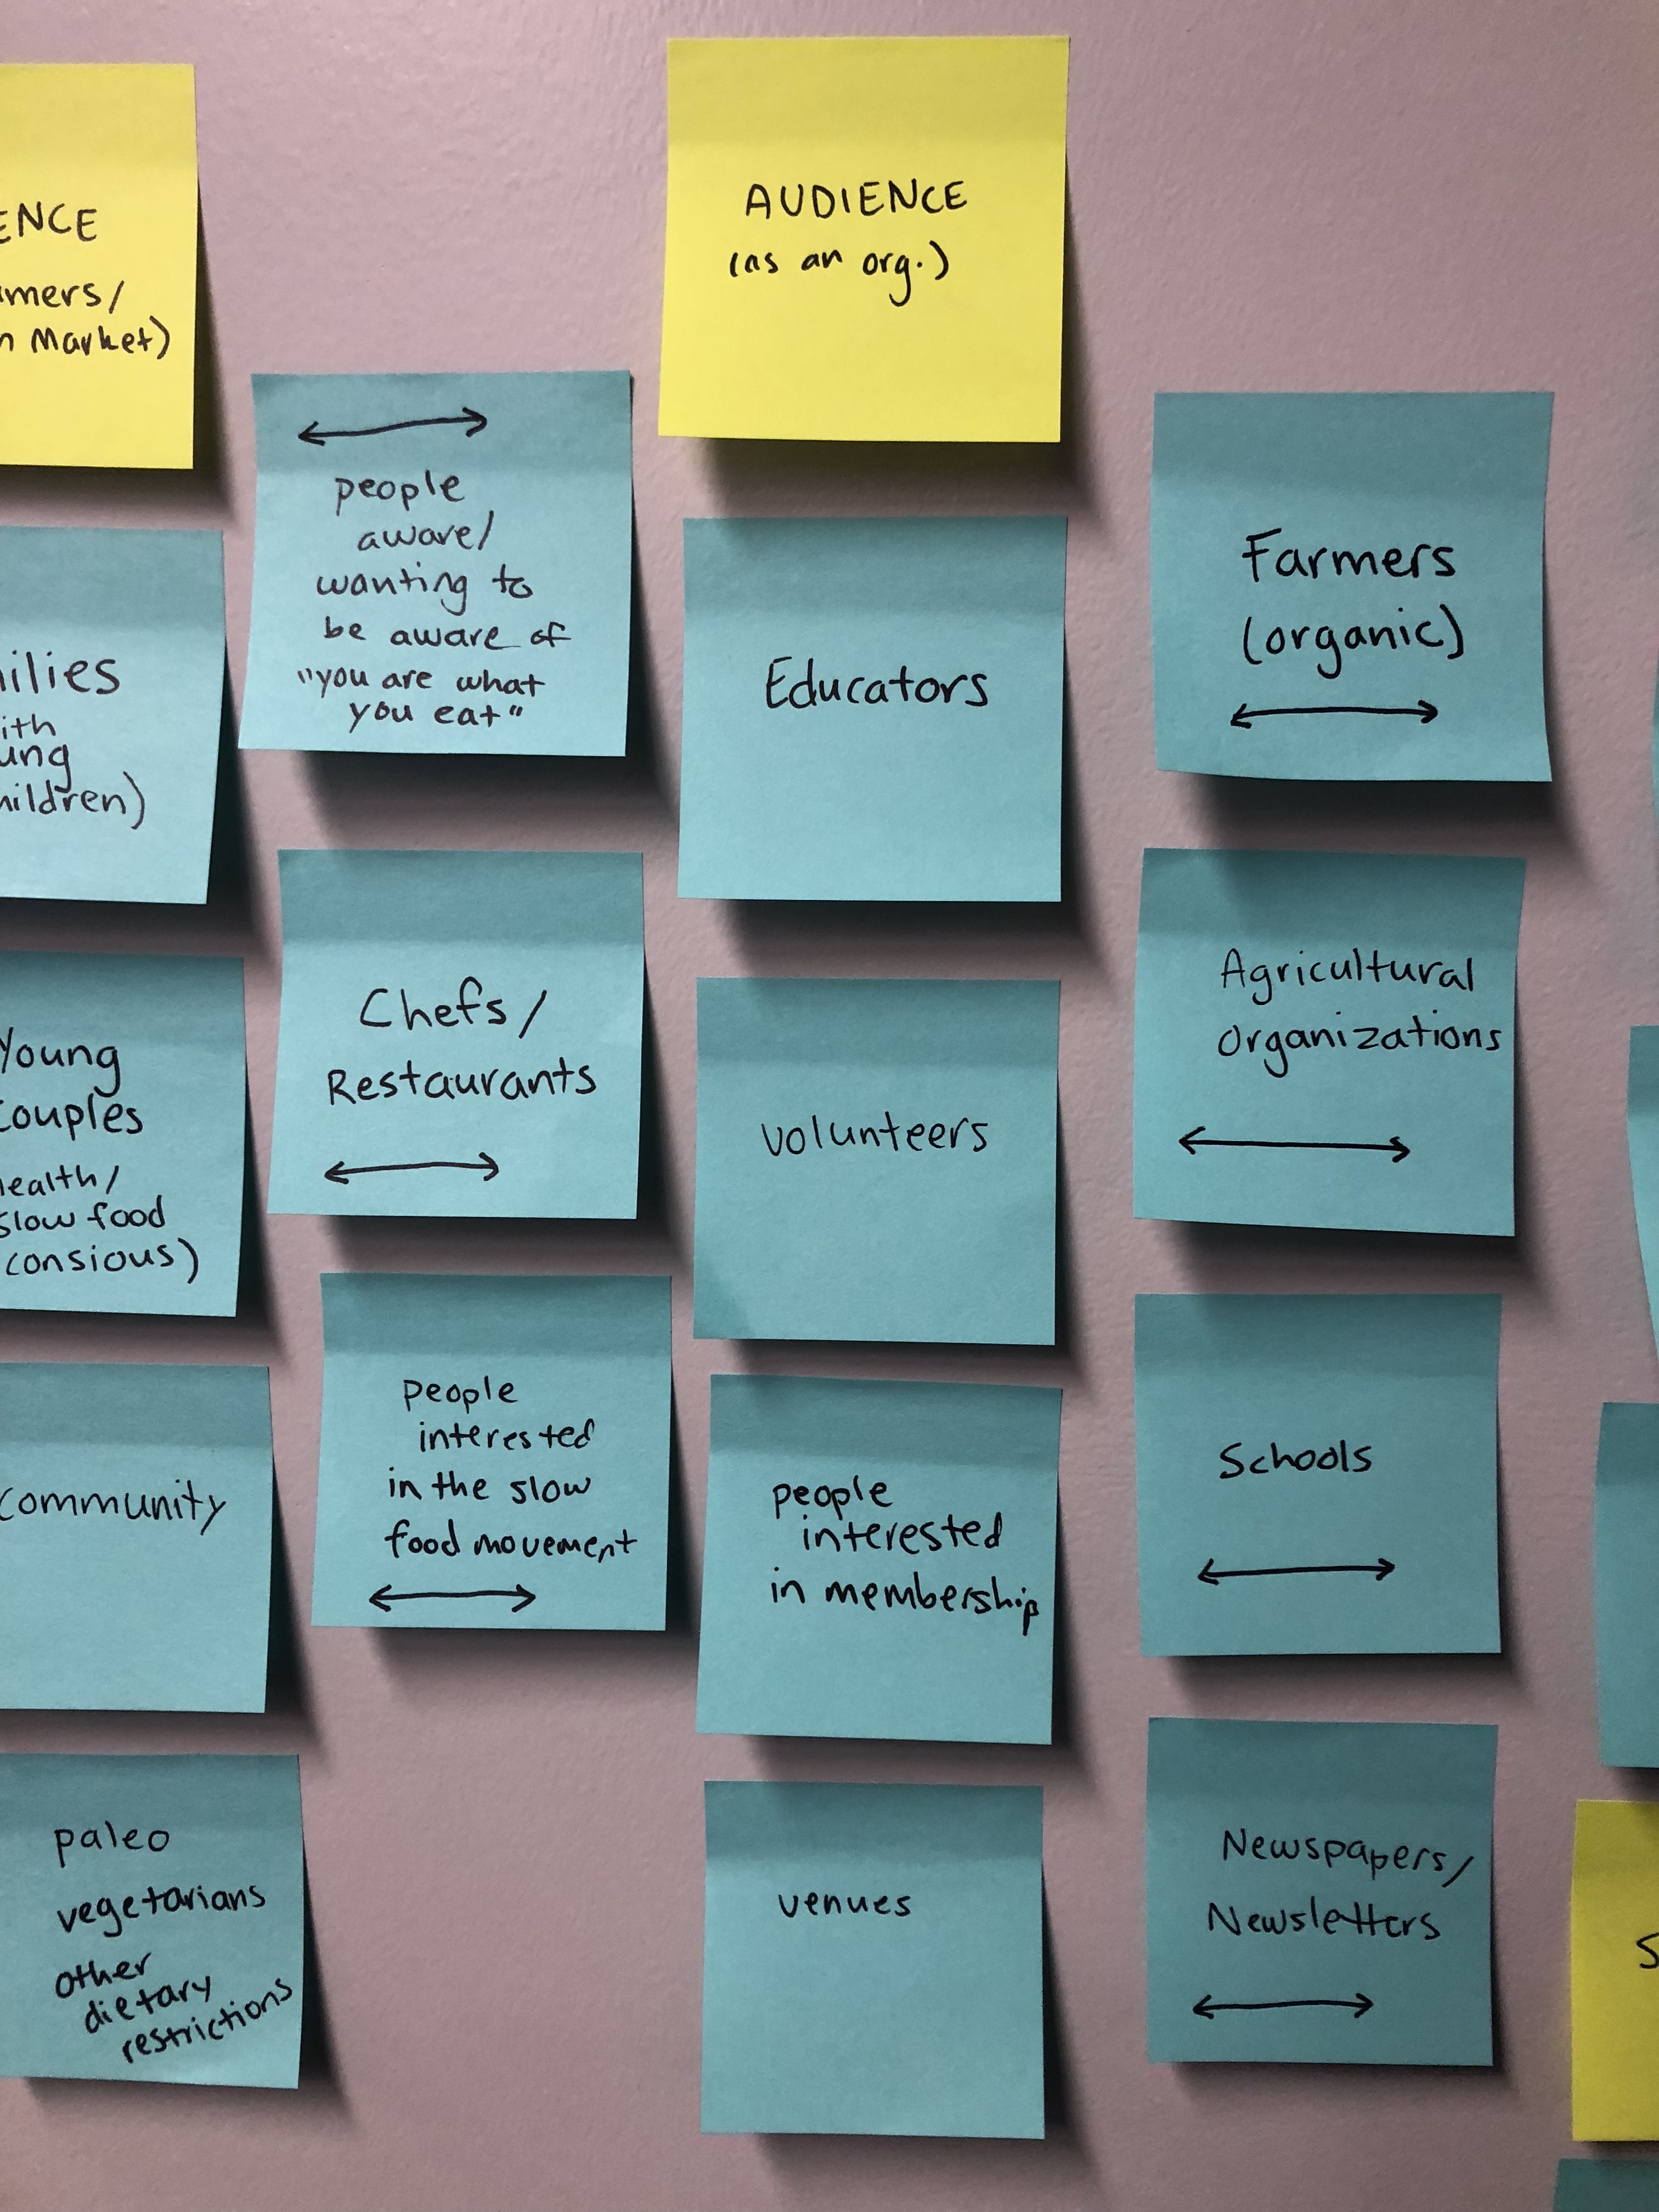 ENCE
mers/
n Market)
ilies
ith
ung
hildren)
Young
Couples
health/
slow food
consious)
community
paleo
vegetarians
other
dietary
restrictions
people
aware/
wanting to
be aware of
"you are what
you eat"
Chefs/
Restaurants
people
interested
in the slow
food movement
AUDIENCE
(as an org.)
Educators
volunteers
people
interested
in membership
venues
Farmers
(organic)
Agricultural
organizations
Schools
Newspapers/
Newsletters
S